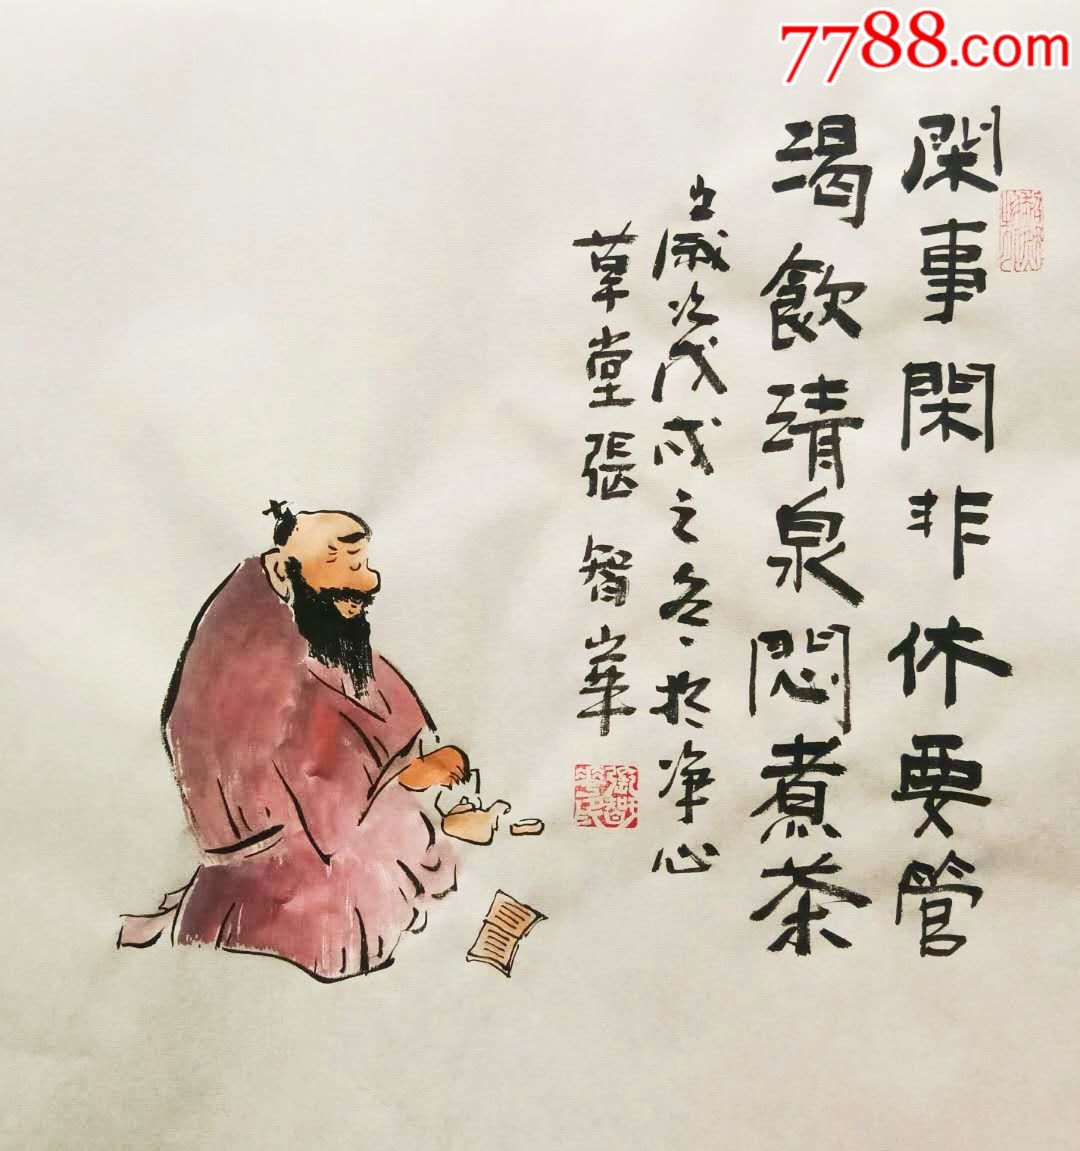 7788.com
閑事閑非休要管
渴飲清泉悶煮茶
歲次戊戌之冬於净心
草堂張智華